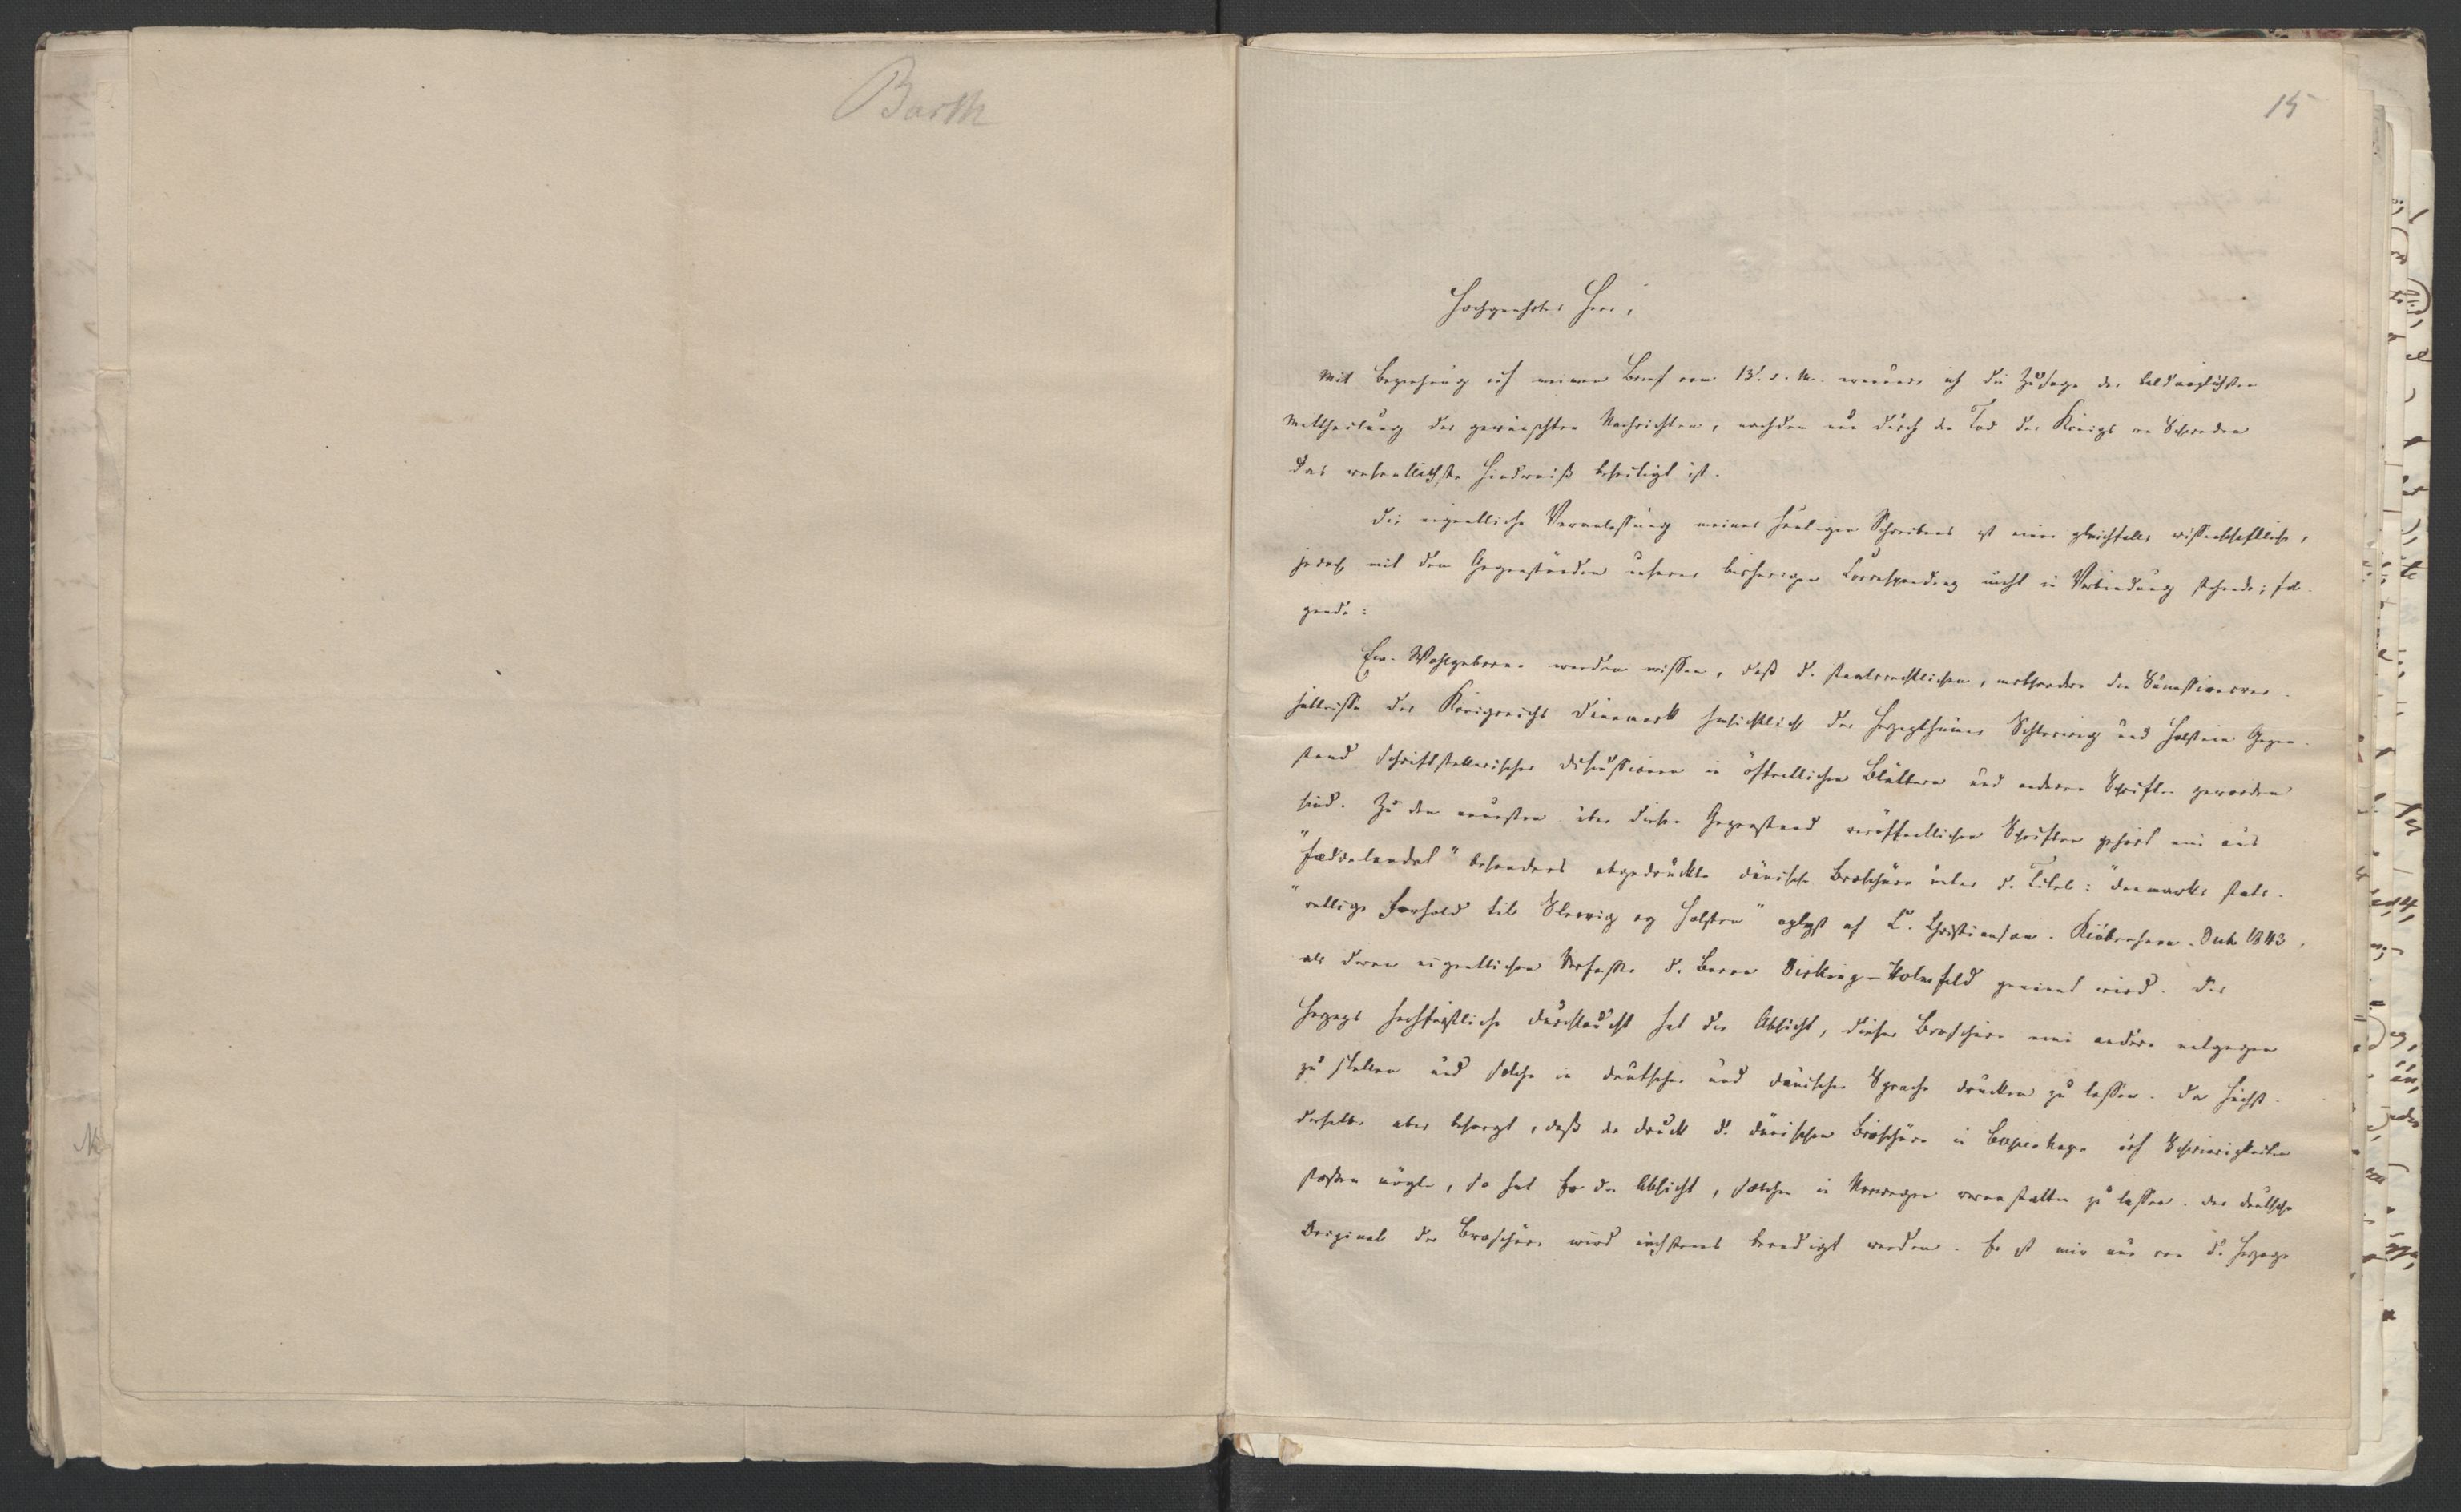 Barth
15
Hochgeehrter Herr,
Mit Beziehung auf meinen Brief vom 13. d. M. erneuere ich die Zusage der baldmöglichsten
Mittheilung der gewünschten Nachrichten, nachdem nun durch den Tod des Königs von Schweden
das wesentlichste Hinderniß beseitigt ist.
Die eigentliche Veranlassung meines heutigen Schreibens ist eine gleichfalls wissenschaftliche,
jedoch mit den Gegenständen unserer bisherigen Correspondenz nicht in Verbindung stehende; fol-
gende:
Ew. Wohlgeboren werden wissen, daß d. staatsrechtlichen, insbesondere die Successionsver-
hältnisse des Königreichs Dänemark hinsichtlich der Herzogthümer Schleswig und Holstein Gegen-
stand schriftstellerischer Discussionen in öffentlichen Blättern und anderen Schriften geworden
sind. Zu den neuesten über diesen Gegenstand veröffentlichten Schriften gehört eine aus
"Fædrelandet" besonders abgedruckte dänische Broschüre unter d. Titel: "Danmarks stats-
"retlige Forhold til Slesvig og Holsten" oplyst af C. Christiansen. Kiöbenhavn. 1843,
als deren eigentlicher Verfasser d. Baron Dirking-Holmfeld genannt wird. Des
Herzogs hochfürstliche Durchlaucht hat die Absicht, dieser Broschüre eine andere entgegen
zu stellen und solche in deutscher und dänischer Sprache drucken zu lassen. Da Höchst-
derselbe aber besorgt, daß der Druck d. dänischen Broschüre in Copenhagen auf Schwierigkeiten
stoßen mögte, so hat Er die Absicht, solchen in Norwegen veranstalten zu lassen. Das deutsche
Original der Broschüre wird nächstens beendigt werden. Es ist mir nun von d. Herzoge